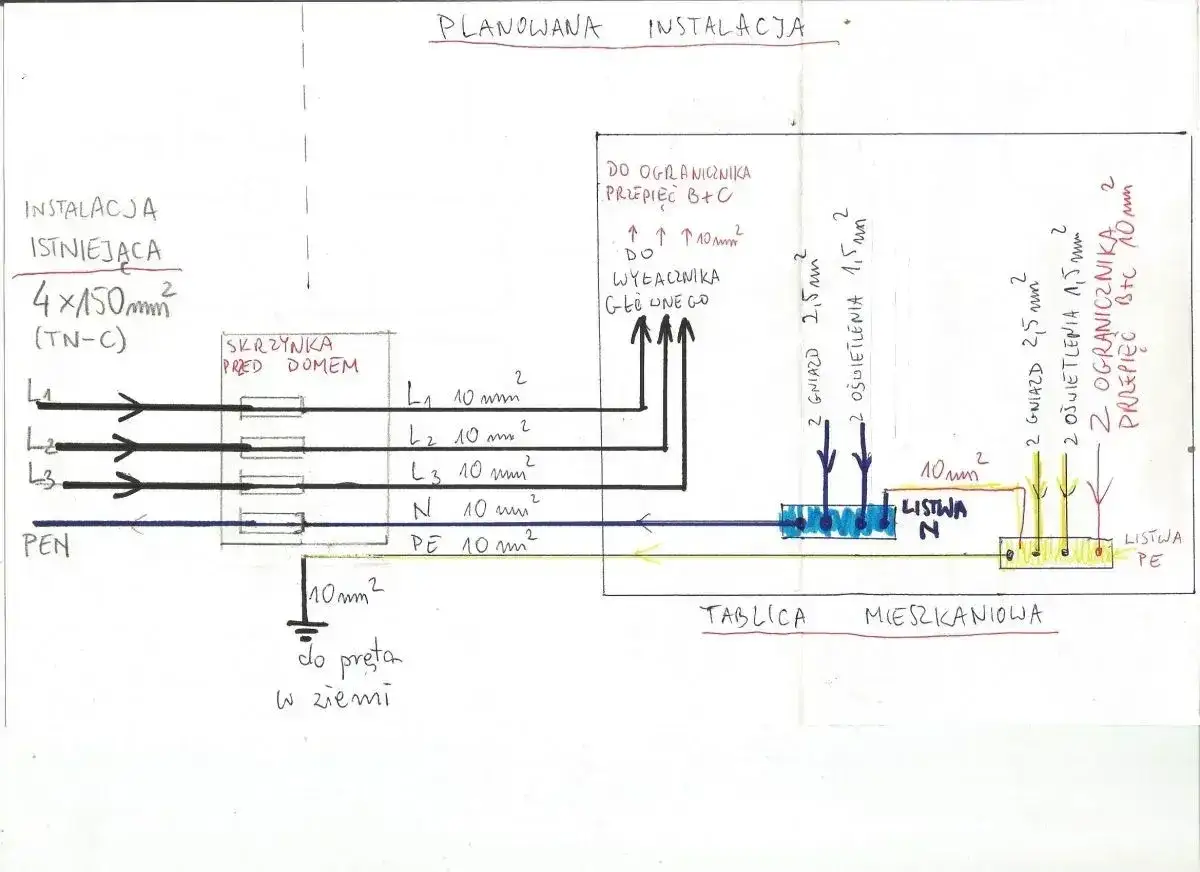 PLANOWANA INSTALACJA
INSTALACJA
ISTNIEJĄCA
4×150mm²
(TN-C)
SKRZYNKA
PRZED DOMEM
L1
L2
L3
PEN
L1 10mm²
L2 10mm²
L3 10mm²
N 10mm²
PE 10m²
10mm²
do pręta
w ziemi
DO OGRANICZNIKA
PRZEPIĘĆ B+C
10mm²
DO
WYŁĄCZNIKA
GŁÓWNEGO
Z GNIAZD 2,5mm²
Z OŚWIETLENIA 1,5mm²
LISTWA
N
10mm²
Z GNIAZD 2,5mm²
Z OŚWIETLENIA 1,5mm²
Z OGRANICZNIKA
PRZEPIĘĆ B+C 10mm²
LISTWA
PE
TABLICA MIESZKANIOWA